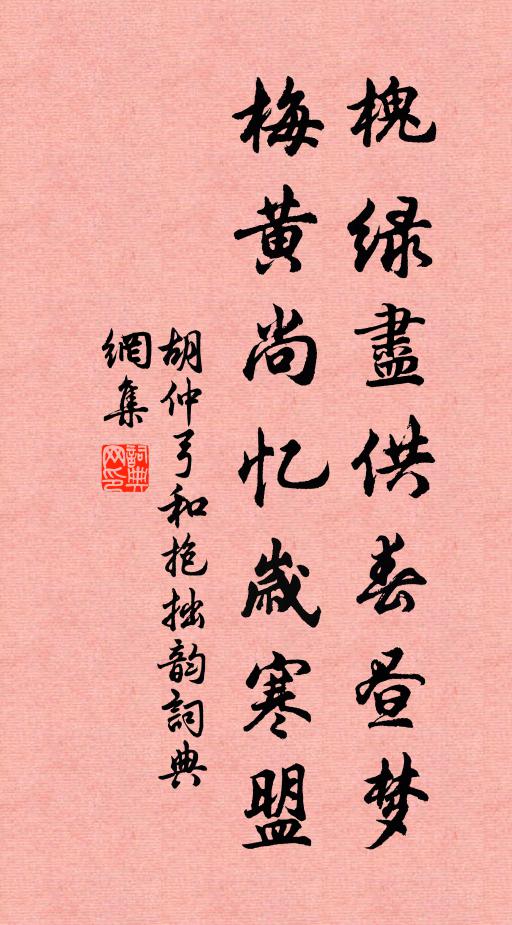 槐绿盡供春昼梦
梅黄尚忆歲寒盟
胡仲弓和抱拙韵詞典
網集
詞典
网印